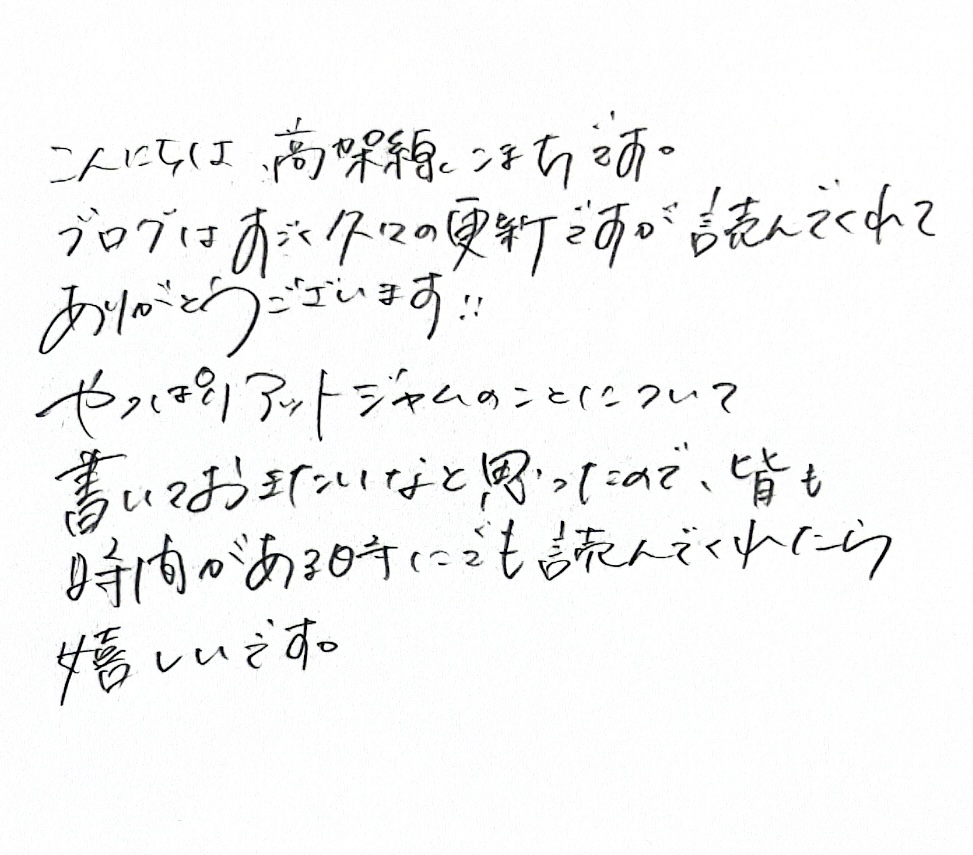 こんにちは、高架線、こまちです。
ブログはすごく久々の更新ですが読んでくれて
ありがとうございます!!
やっぱりアットジャムのことについて
書いておきたいなと思ったので、皆も
時間がある時にでも読んでくれたら
嬉しいです。